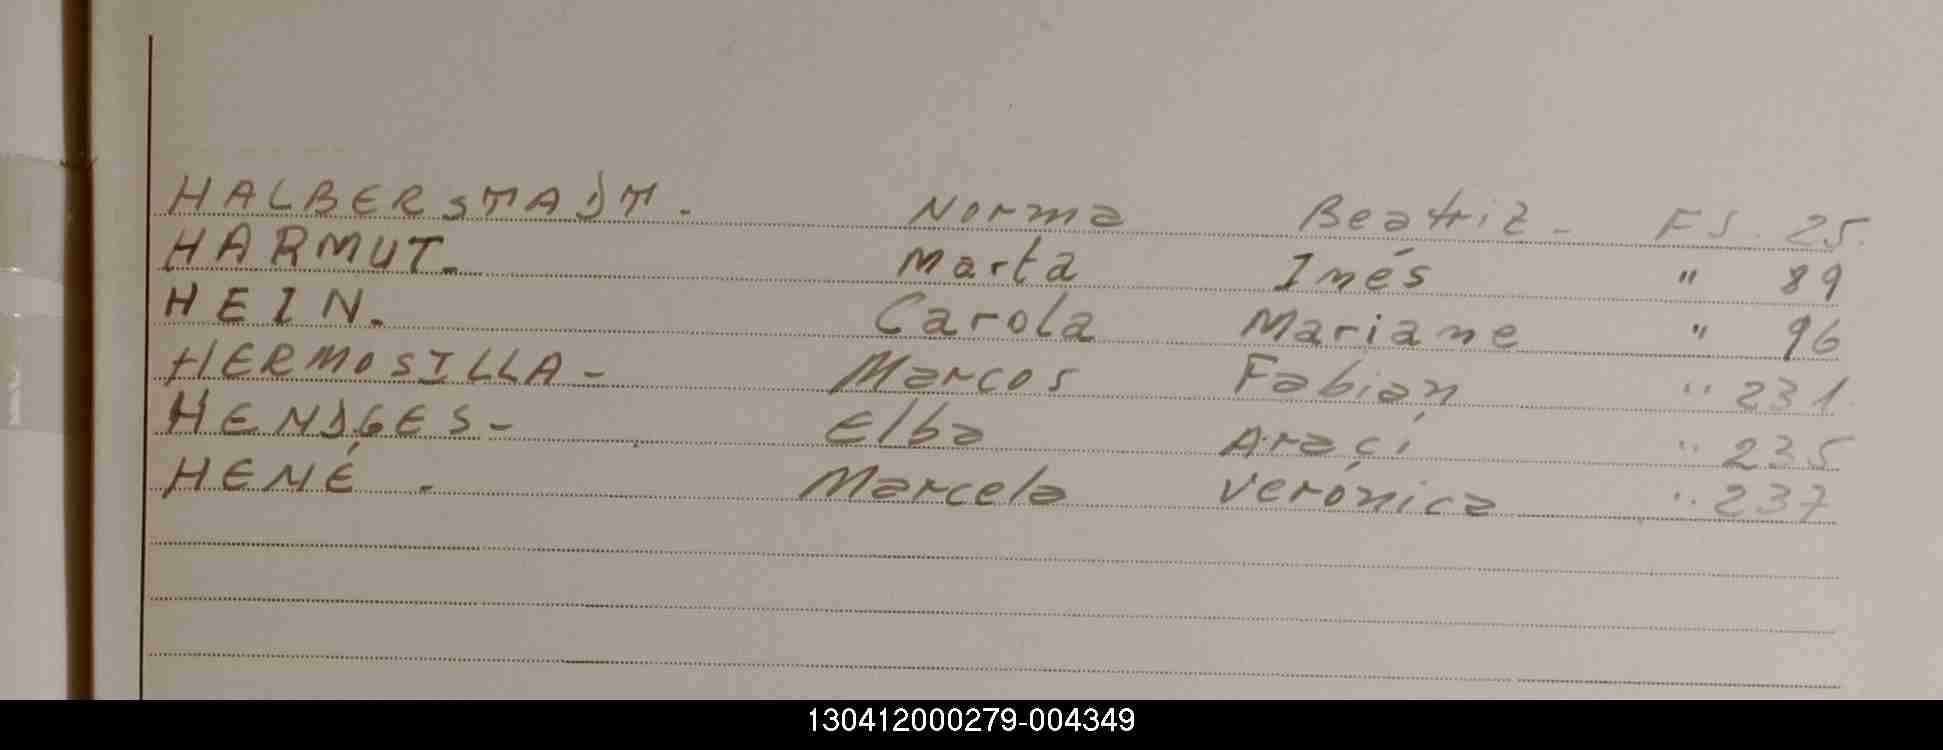 HALBERSTADT. Norma Beatriz - FS. 25.
HARMUT. Marta Inés " 89
HEIN. Carola Mariane " 96
HERMOSILLA - Marcos Fabián " 231.
HENDGES - Elba Araçi " 235
HENÉ . Marcela Verónica " 237
130412000279-004349